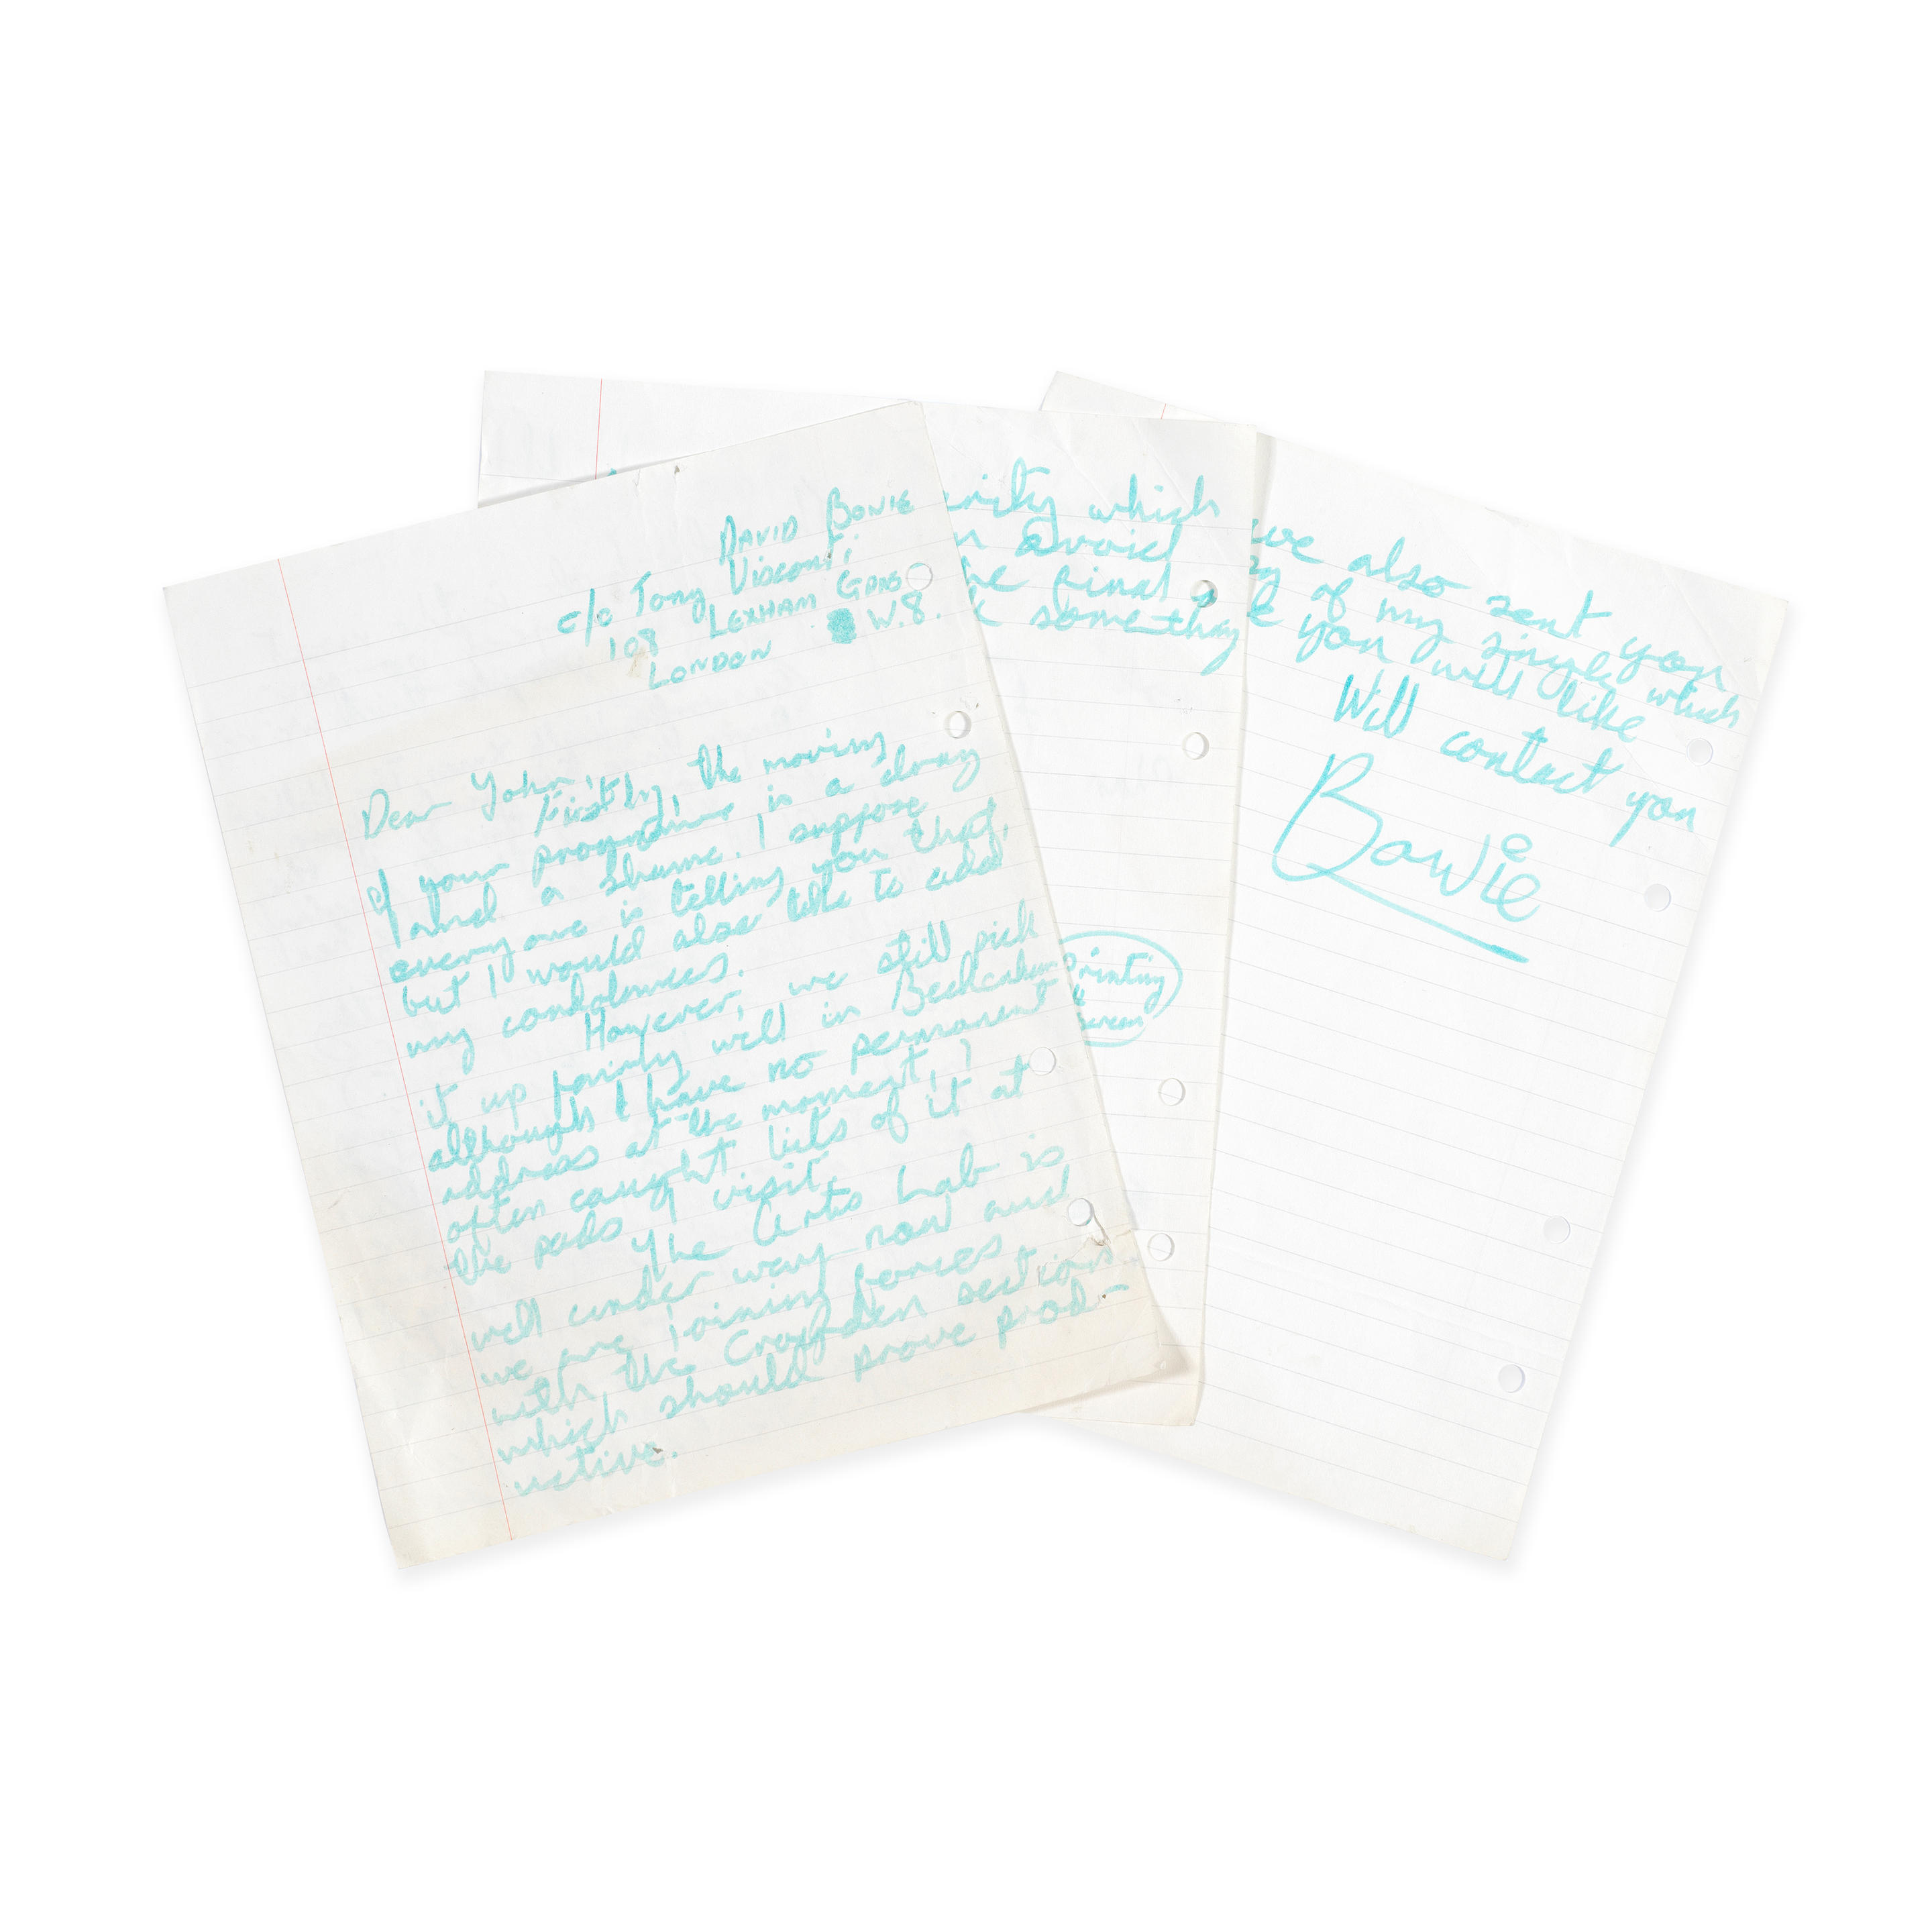 DAVID BOWIE
c/o Tony Visconti
108 LEXHAM GDNS
LONDON W.8.
Dear John,
Firstly, the moving
of your programme is a drag
and a shame. I suppose
everyone is telling you that,
but I would also like to add
my condolences.
However, we still pick
it up fairly well in Beckenham
although I have no permanent
address at the moment, I
often caught bits of it at
the pads I visit.
The Arts Lab is
well under way now and
we are joining forces
with the Croydon section
which should prove prod-
uctive.
which
avoid
final
something
printing
also sent you
of my single which
you will like
Will contact you
Bowie